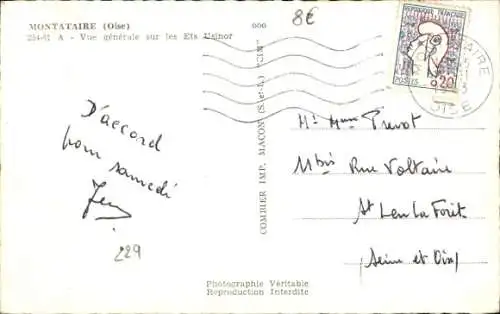 MONTATAIRE (Oise)
284-61 A - Vue générale sur les Ets Usinor
000
8€
REPUBLIQUE FRANÇAISE
POSTES 0,20
OISE
D'accord
pour samedi
229
COMBIER IMP. MACON (S.-et-L.) "CIM"
Mr Mme Prevot
11bis Rue Voltaire
St Leu La Forêt
Seine et Oise
Photographie Véritable
Reproduction Interdite